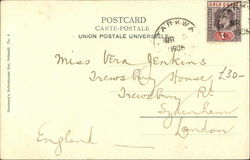 POSTCARD
CARTE-POSTALE
UNION POSTALE UNIVERS
TARKWA
1906
GOLD CO
Miss Vera Jenkins
Trewsbury House
£30-
Trewsbury Rd
Sydenham
London
England